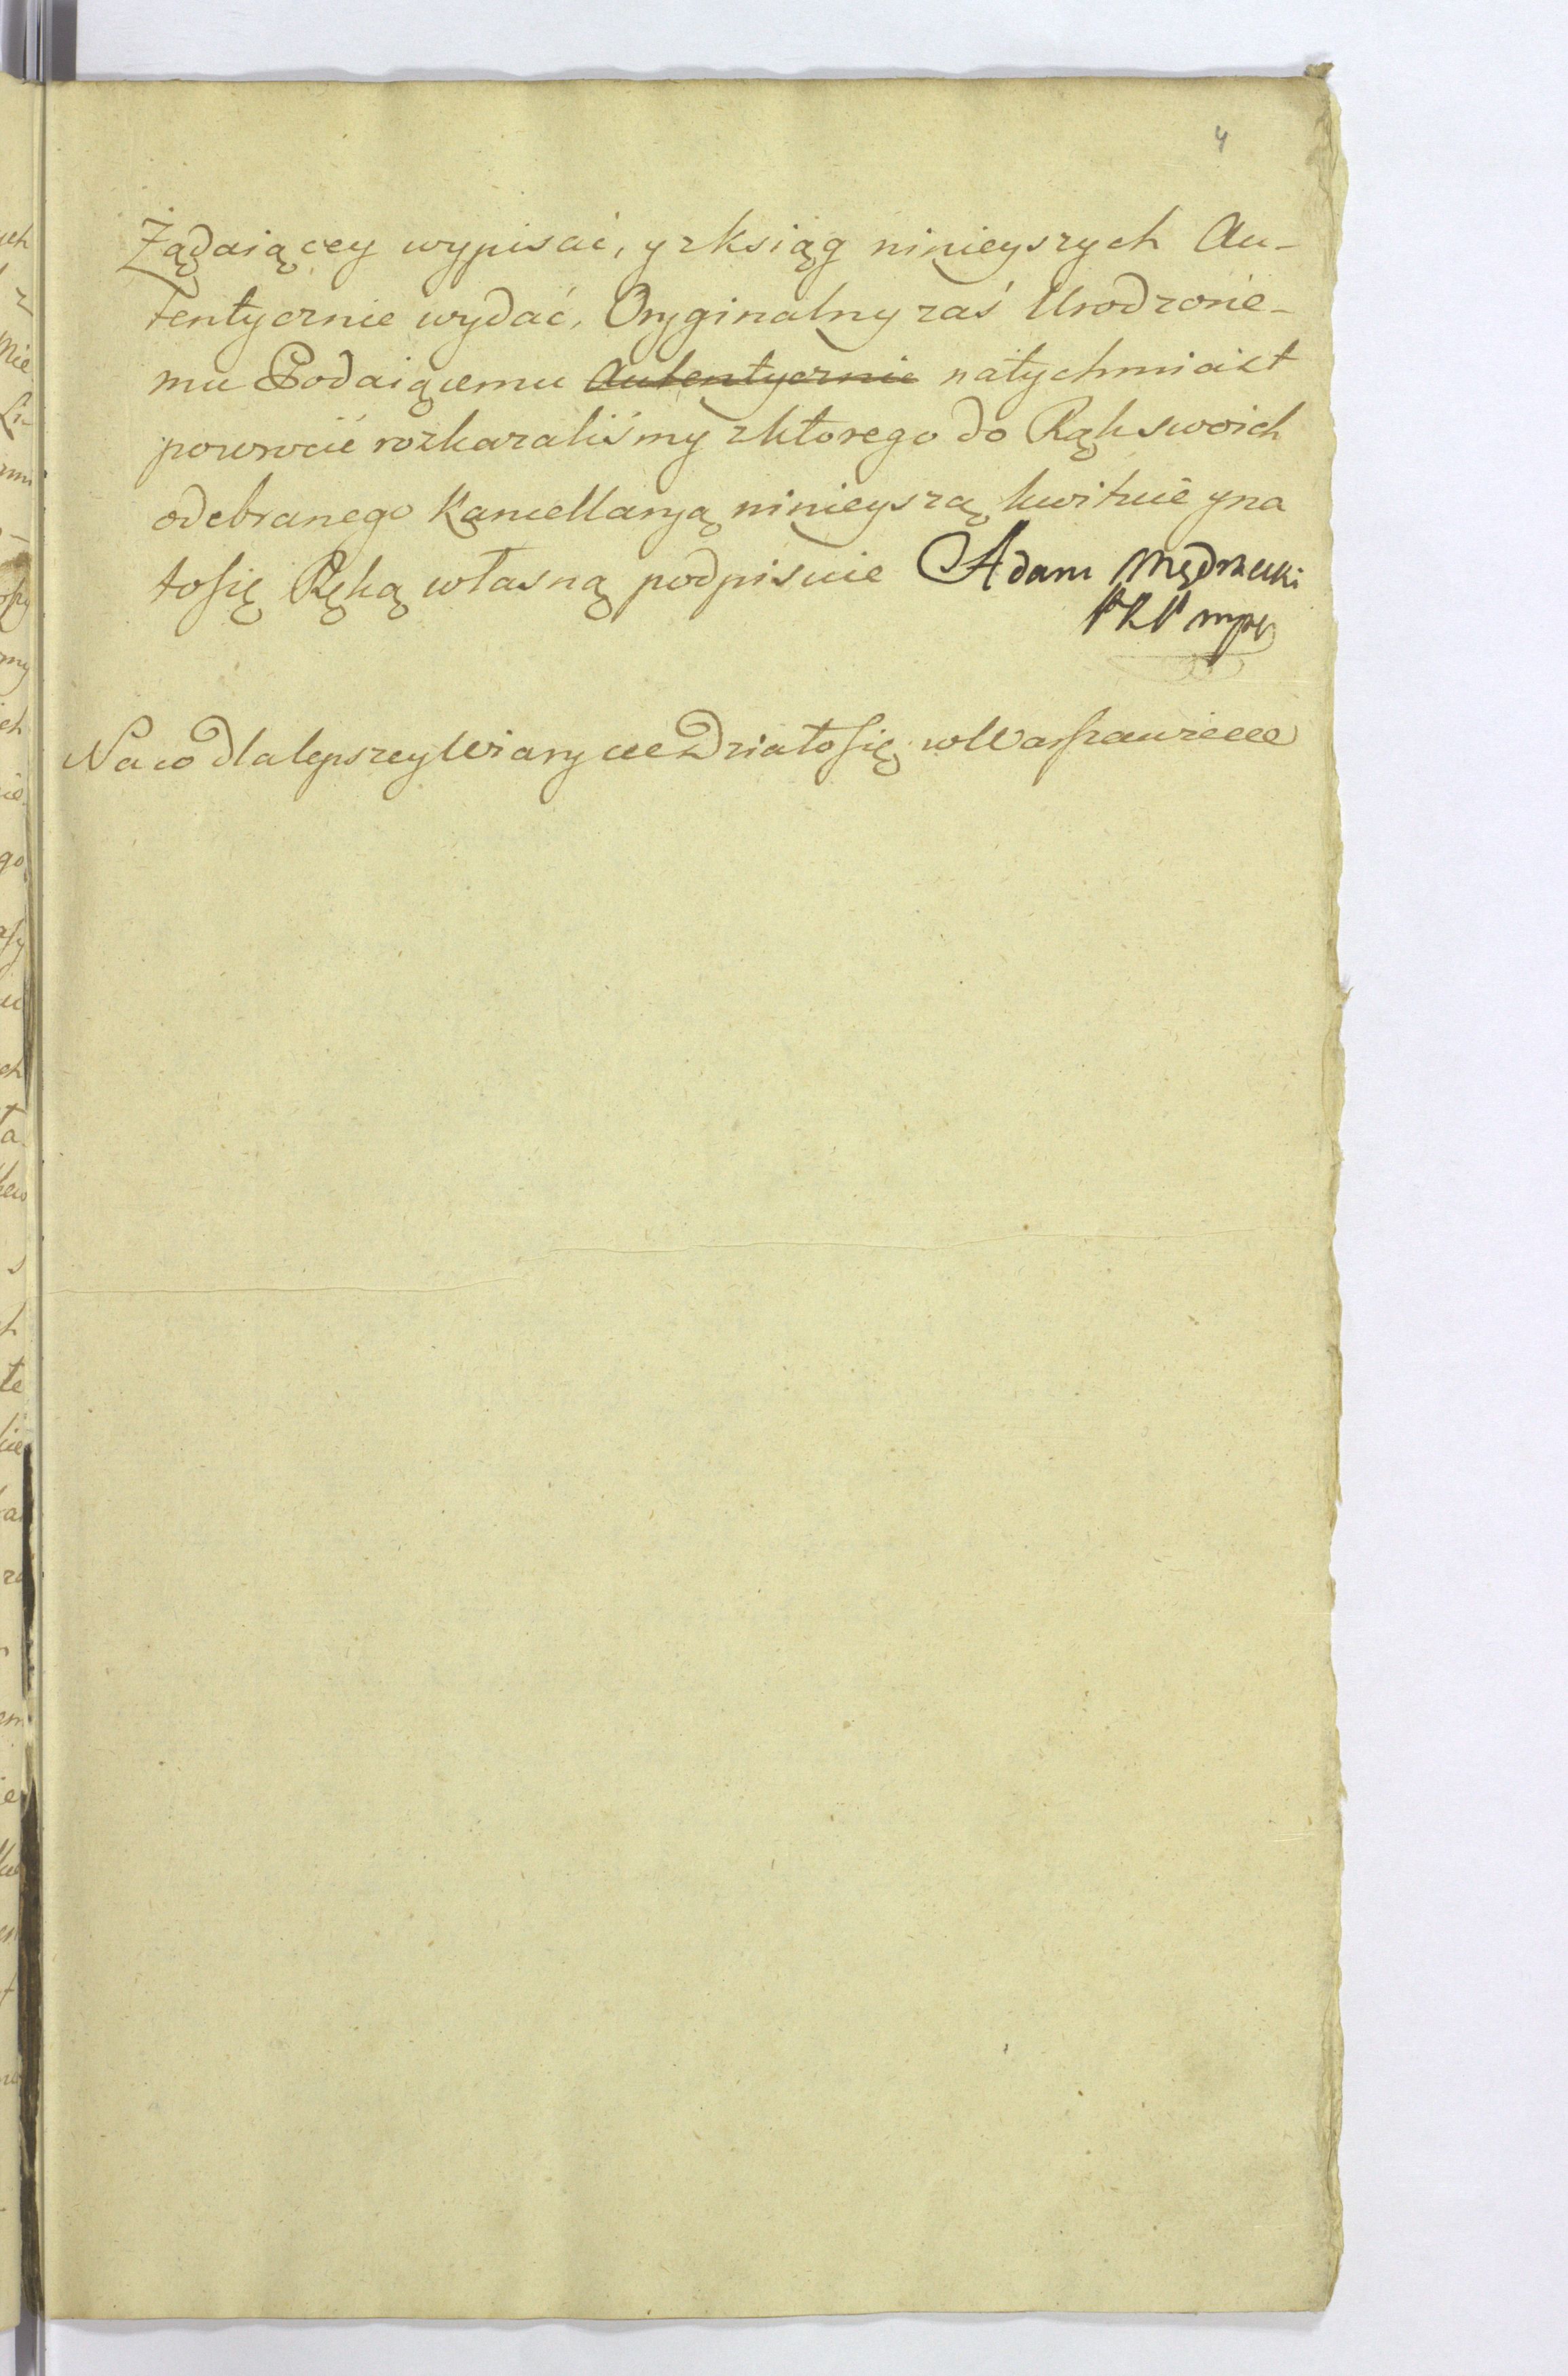 4
Żądaiącey wypisać, y zksiąg ninieyszych Au-
tentycznie wydać, Oryginalny zaś Urodzone-
mu Podaiącemu Autentycznie natychmiast
powrocić rozkazaliśmy zktorego do Rąk swoich
odebranego Kancellaryą ninieyszą kwituie yna
tosię Ręką własną podpisuie Adam Mędrzecki
mpr
Naco dla lepszey Wiary etc Działosię w Warszawie etc